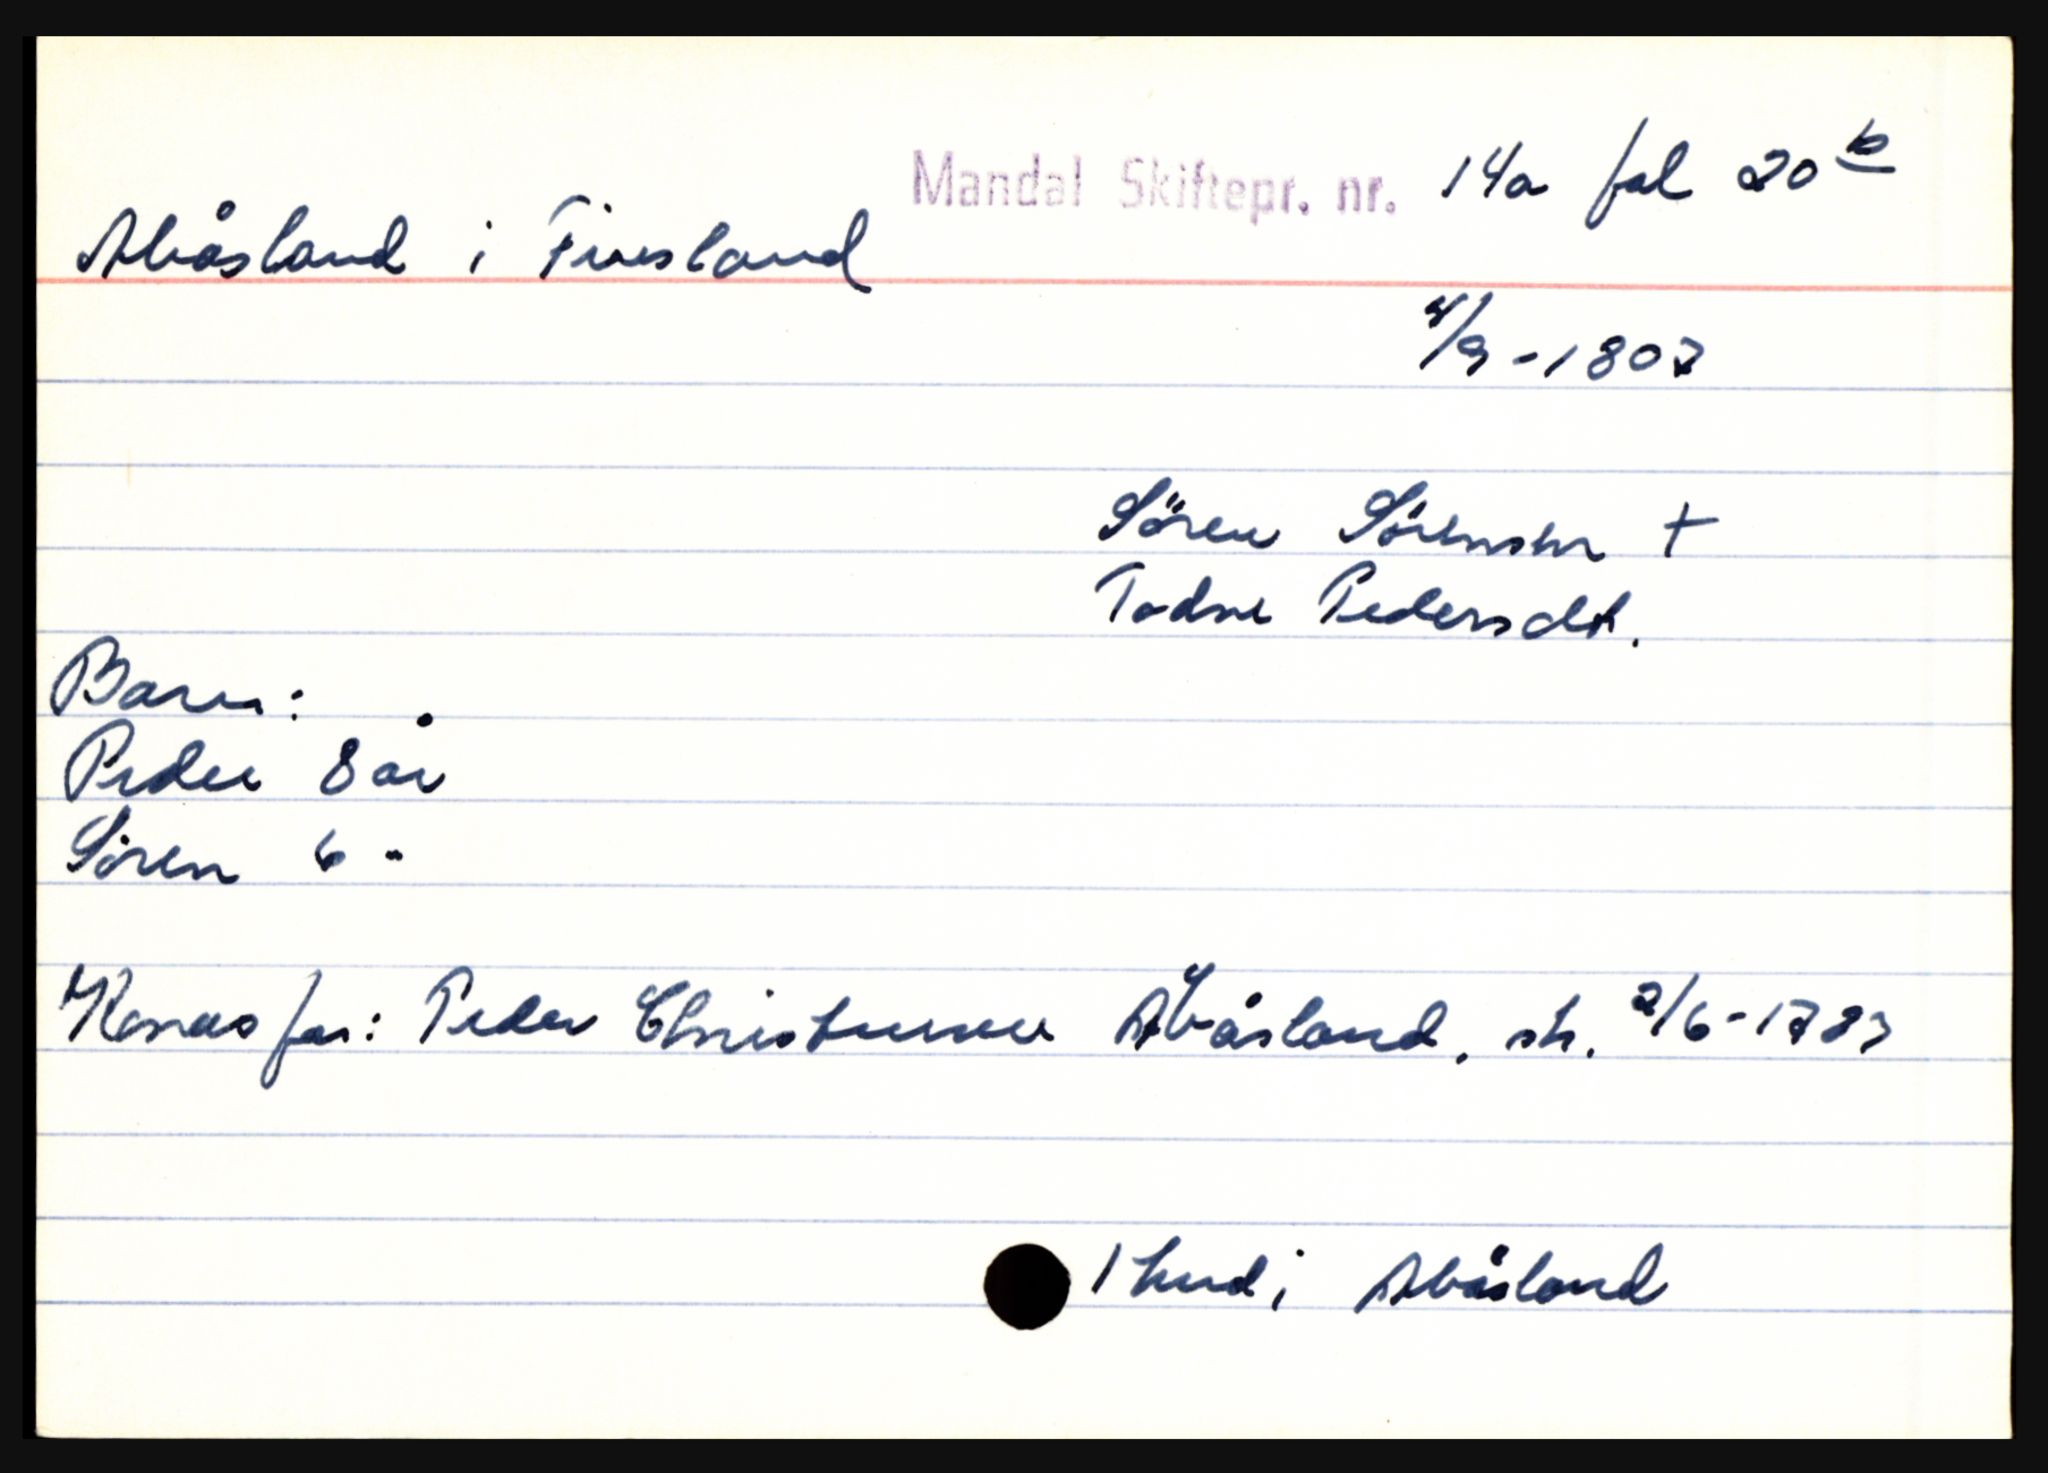 Mandal Skiftepr. nr. 14a fol 20 b
Abåsland i Finsland
4/9-1807
Sören Sörensen +
Todne Pedersdt.
Barn:
Peder 8 år
Sören 6 "
Konas far: Peder Christensen Abåsland, sk. 2/6-1787
1 hud i Abåsland